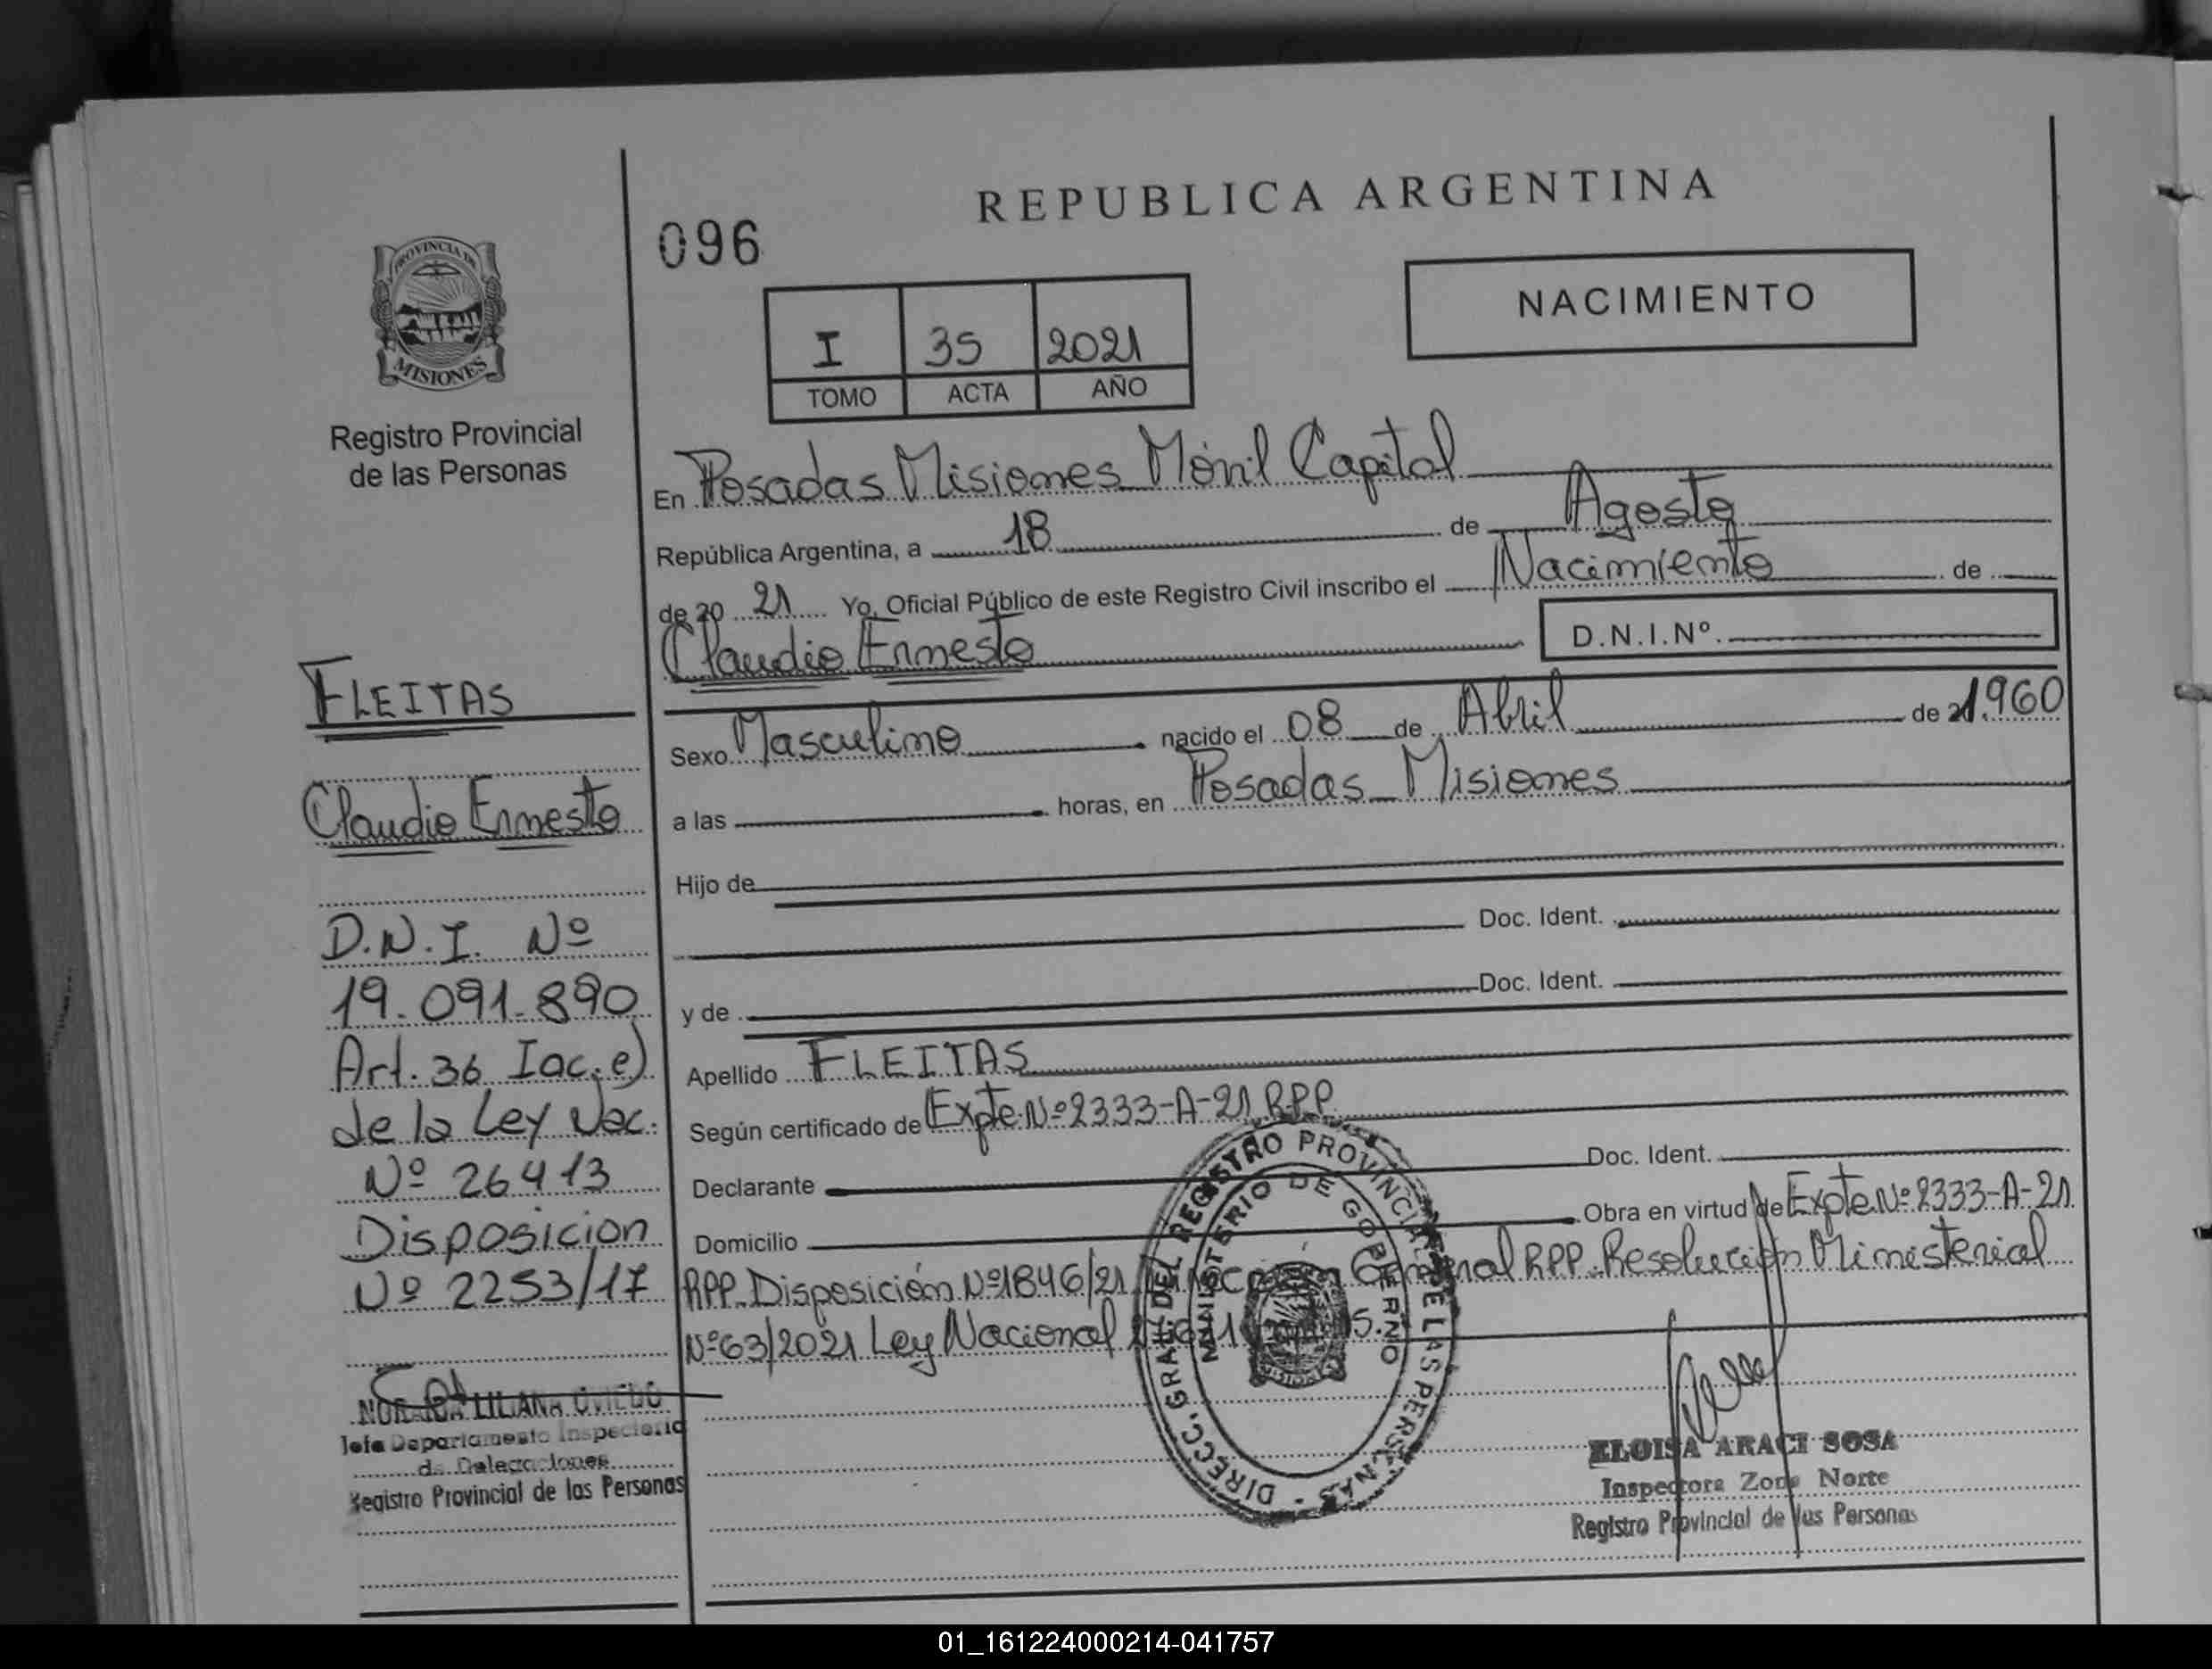 REPUBLICA ARGENTINA
096
NACIMIENTO
PROVINCIA DE
MISIONES
I 35 2021
TOMO ACTA AÑO
Registro Provincial
de las Personas
En Posadas Misiones Móvil Capital
República Argentina, a 18 de Agosto
de 20 21 Yo, Oficial Público de este Registro Civil inscribo el Nacimiento de
Claudio Ernesto D.N.I.Nº.
Sexo Masculino nacido el 08 de Abril de 1960
a las horas, en Posadas Misiones
Hijo de
Doc. Ident.
y de Doc. Ident.
Apellido FLEITAS
Según certificado de Expte Nº 2333-A-21 RPP
Declarante Doc. Ident.
Domicilio Obra en virtud de Expte Nº 2333-A-21
RPP Disposición Nº1846/21 General RPP. Resolución Ministerial
Nº63/2021 Ley Nacional
FLEITAS
Claudio Ernesto
D.N.I. Nº
19.091.890
Art. 36 Inc. e)
de la Ley Nac.
Nº 26413
Disposicion
Nº 2253/17
LILIANA OVIEDO
Jefa Departamento Inspectoria
de Delegaciones
Registro Provincial de las Personas
DIRECC. GRAL. DEL REGISTRO PROVINCIAL DE LAS PERSONAS
MINISTERIO DE GOBIERNO
ELOISA ARACI SOSA
Inspectora Zona Norte
Registro Provincial de las Personas
01_161224000214-041757